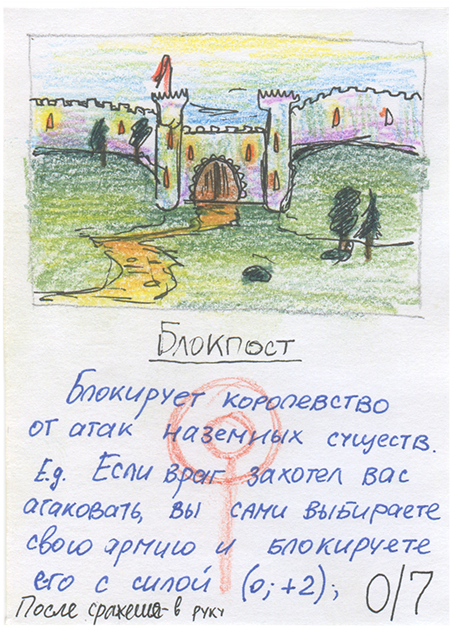 Блокпост
Блокирует королевство
от атак наземных существ.
E.g. Если враг захотел вас
атаковать, вы сами выбираете
свою армию и блокируете
его с силой (0; +2);
0/7
После сражения - в руку